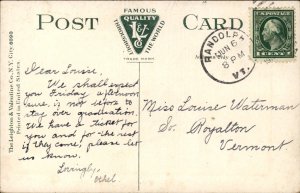 POST CARD
FAMOUS
QUALITY
THROUGHOUT THE WORLD
TRADE MARK
The Leighton & Valentine Co., N.Y. City
Printed in United States
RANDOLPH
JUN 6
8 PM
VT.
1 CENT 1
Dear Louise,
We shall expect
you Friday afternoon
sure, is not before to
stay over graduation.
We have a ticket for
you and for the rest
if they come, please let
us know.
Lovingly,
Ethel
Miss Louise Waterman
So. Royalton
Vermont